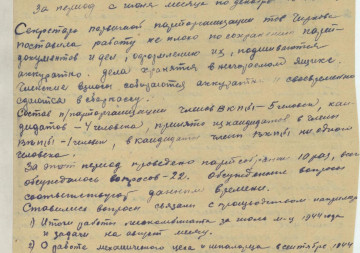 За период с июня месяца по декабрь
Секретарь первичной парторганизации тов Чиркова
поставила работу не плохо по сохранению парт-
документов и дел, оформлению их, подшиваются
аккуратно. дела хранятся в несгораемом ящике.
Членские взносы собираются аккуратно и своевременно
сдаются в сберкассу.
Состав п/парторганизации членов ВКП(б) - 5 человек, кан-
дидатов - 4 человека, принято из кандидатов в члены
ВКП(б) - 1 человек, в кандидаты члены ВКП(б) не одного
человека.
За этот период проведено партсобраний 10 раз, всего
обсуждалось вопросов - 22. Обсуждением вопросы
соответствуют данным времени.
Ставились вопросы связани с производством например
1) Итоги работы за июль м-ц 1944 года
и задачи на август месяц.
2) О работе механического цеха в сентябре 1944